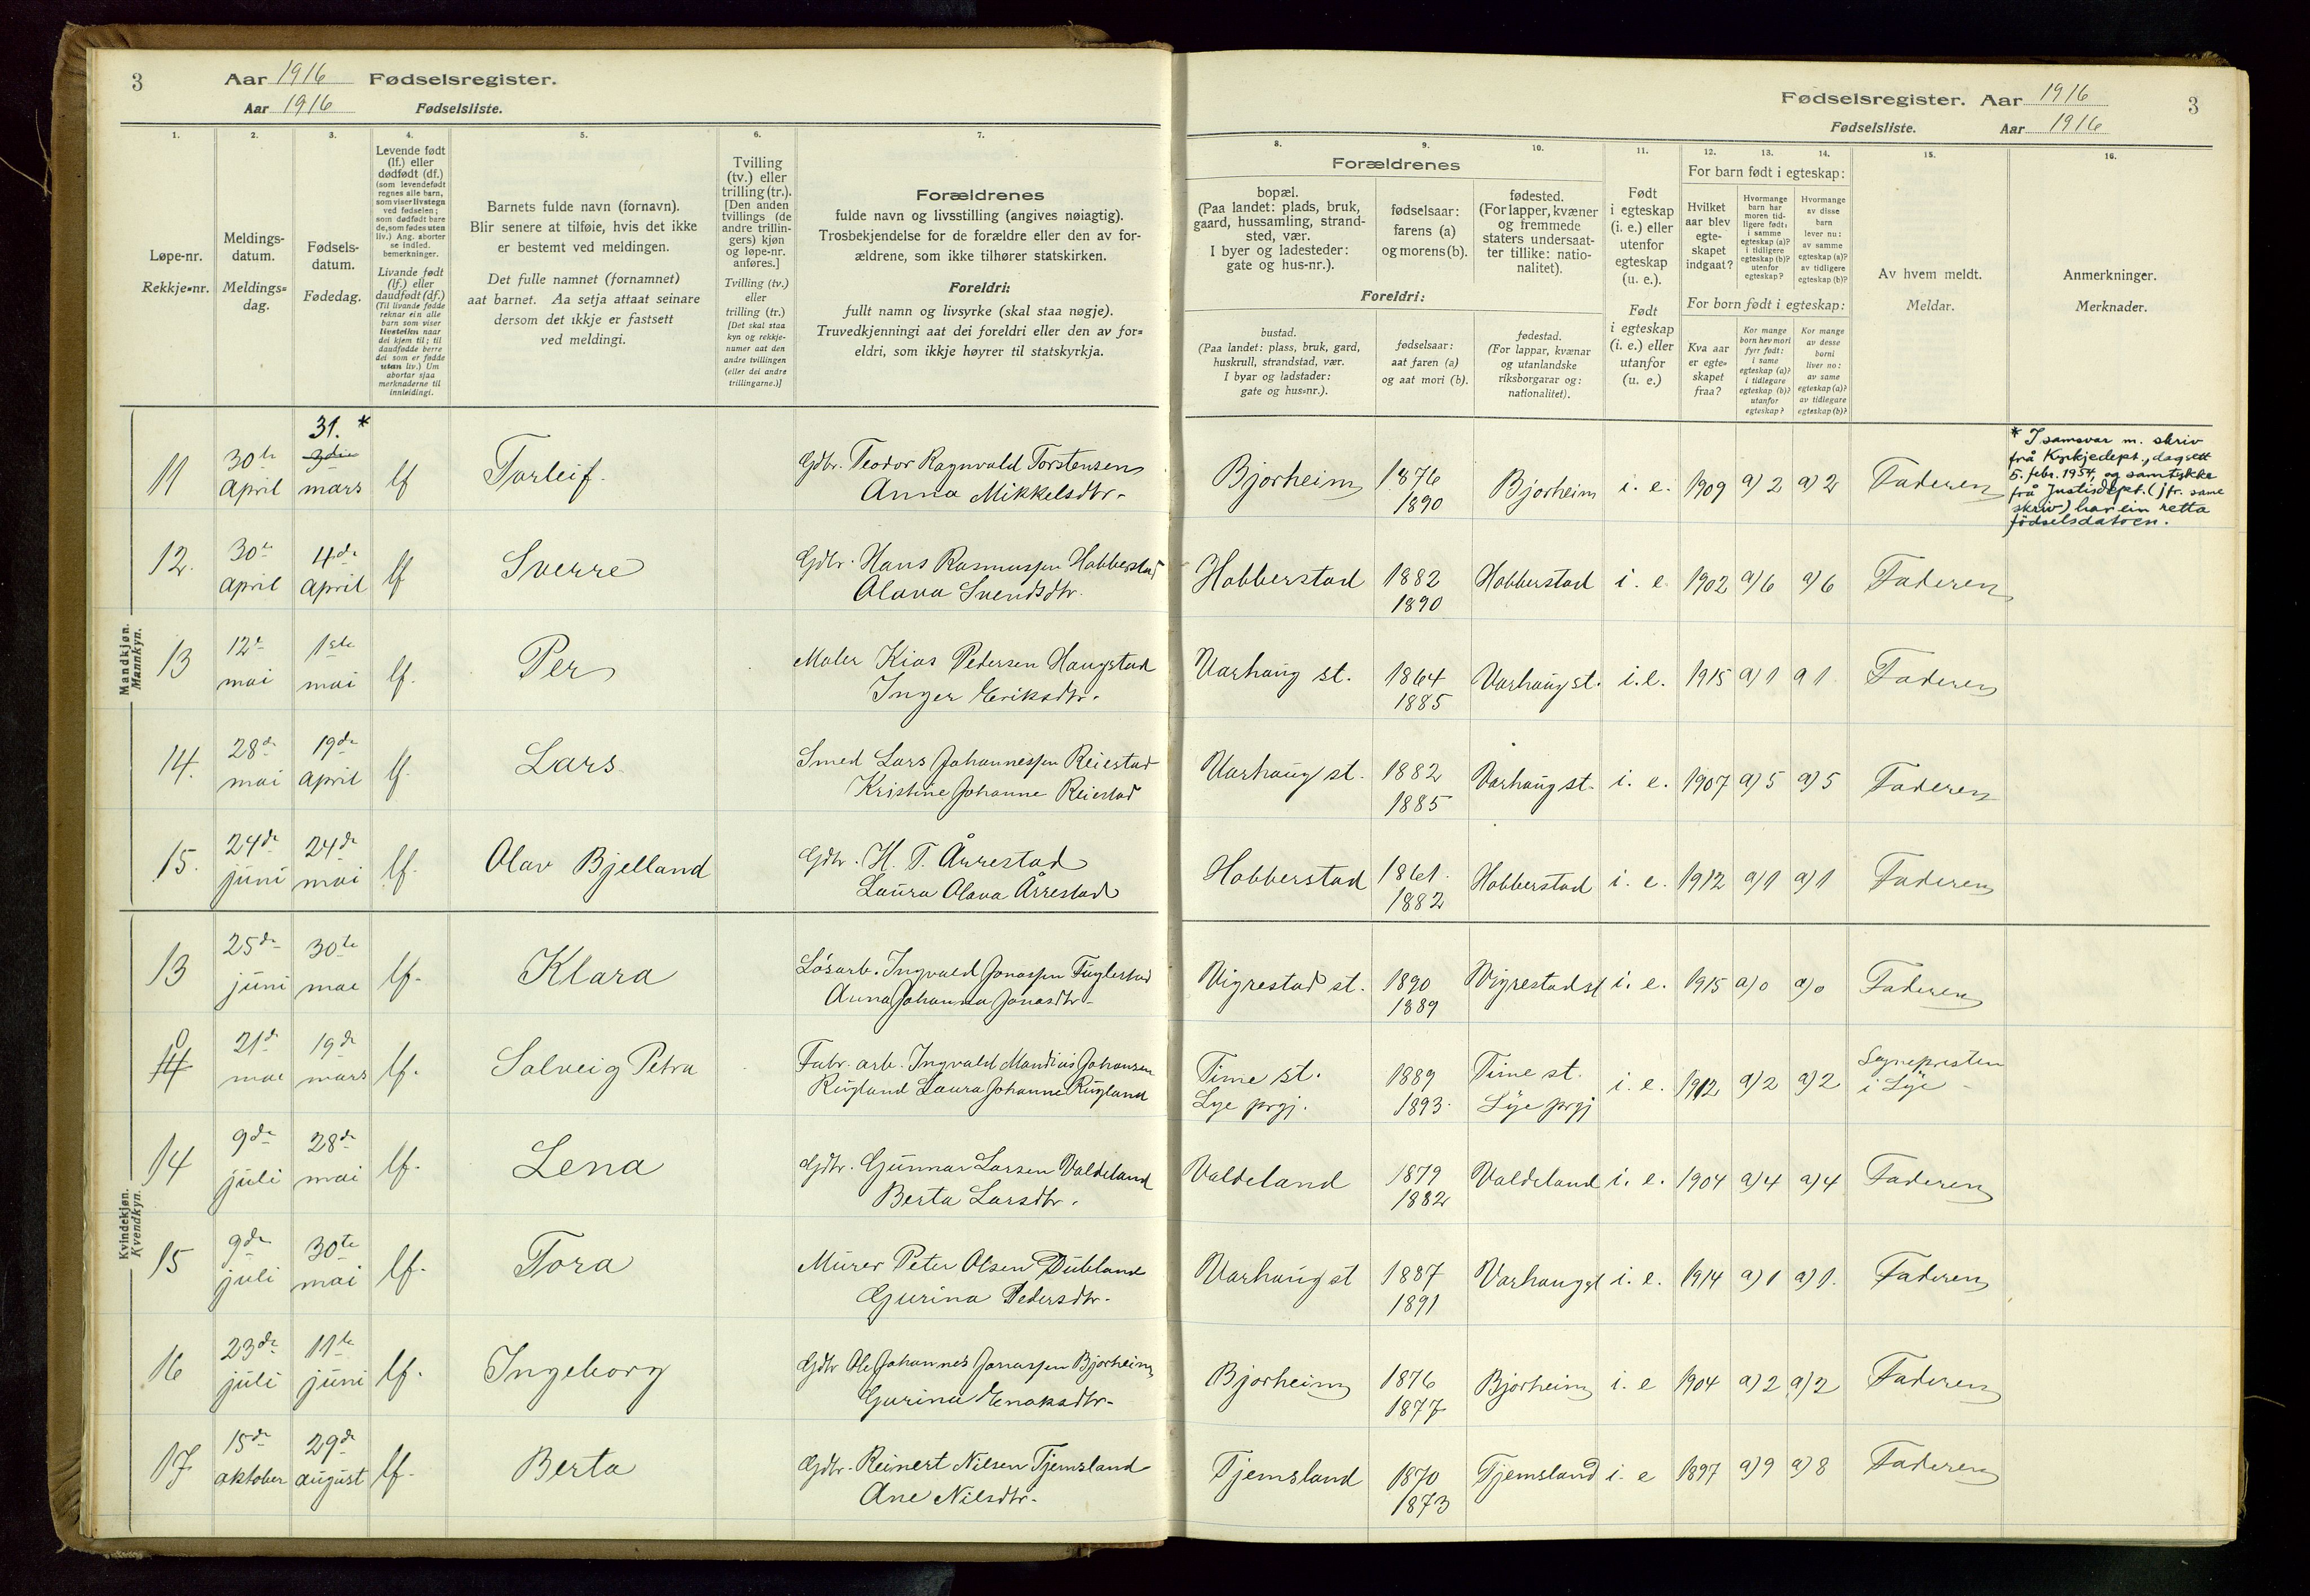 3 Aar 1916 Fødselsregister.
Aar 1916 Fødselsliste.
Fødselsregister. Aar 1916 3
Fødselsliste. Aar 1916
1. 2. 3. 4. 5. 6. 7.
Løpe-nr.
Rekkje-nr.
Meldings-
datum.
Meldings-
dag.
Fødsels-
datum.
Fødedag.
Levende født
(lf.) eller
dødfødt (df.)
(som levendefødt
regnes alle barn,
som viser livstegn
ved fødselen;
som dødfødt bare
de, som fødes uten
liv.) Ang. aborter
se indled.
bemerkninger.
Livande født
(lf.) eller
daudfødt (df.)
(Til livande fødde
reknar ein alle
barn som viser
livsteikn naar
dei kjem til; til
daudfødde berre
dei som er fødde
utan liv.) Um
abortar sjaa
merknaderne til
innleidingi.
Barnets fulde navn (fornavn).
Blir senere at tilføie, hvis det ikke
er bestemt ved meldingen.
Det fulle namnet (fornamnet)
aat barnet. Aa setja attaat seinare
dersom det ikkje er fastsett
ved meldingi.
Tvilling
(tv.) eller
trilling (tr.).
[Den anden
tvillings (de
andre trillin-
gers) kjøn
og løpe-nr.
anføres.]
Tvilling (tv.)
eller
trilling (tr.)
[Det skal staa
kyn og rekkje-
numer aat den
andre tvillingen
(eller dei andre
trillingarne.)]
Forældrenes
fulde navn og livsstilling (angives nøiagtig).
Trosbekjendelse for de forældre eller den av for-
ældrene, som ikke tilhører statskirken.
Foreldri:
fullt namn og livsyrke (skal staa nøgje).
Truvedkjenningi aat dei foreldri eller den av for-
eldri, som ikkje høyrer til statskyrkja.
8. 9. 10. 11. 12. 13. 14. 15. 16.
Forældrenes
bopæl.
(Paa landet: plads, bruk,
gaard, hussamling, strand-
sted, vær.
I byer og ladesteder:
gate og hus-nr.).
fødselsaar:
farens (a)
og morens (b).
fødested.
(For lapper, kvæner
og fremmede
staters undersaat-
ter tillike: natio-
nalitet).
Foreldri:
bustad.
(Paa landet: plass, bruk, gard,
huskrull, strandstad, vær.
I byar og ladstader:
gate og hus-nr.).
fødselsaar:
aat faren (a)
og aat mori (b).
fødestad.
(For lappar, kvænar
og utanlandske
riksborgarar og:
nationalitet).
Født
i egteskap
(i. e.) eller
utenfor
egteskap
(u. e.).
Født
i egteskap
(i. e.) eller
utanfor
(u. e.)
For barn født i egteskap:
Hvilket
aar blev
egte-
skapet
indgaat?
Hvormange
barn har
moren tid-
ligere født:
i samme
egteskap (a)?
i tidligere
egteskap (b)?
utenfor
egteskap?
Hvormange
av disse
barn
lever nu:
av samme
egteskap (a)?
av tidligere
egteskap (b)?
For born født i egteskap:
Kva aar
er egte-
skapet
fraa?
Kor mange
born hev mori
fyrr født:
i same
egteskap (a)?
i tidlegare
egteskap (b)?
utanfor
egteskap?
Kor mange
av desse
borni
liver no:
av same
egteskap (a)?
av tidlegare
egteskap (b)?
Av hvem meldt.
Meldar.
Anmerkninger.
Merknader.
Mandkjøn.
Mannkyn.
31. *
11 30te april 3die mars lf Torleif. Gdbr. Teodor Ragnvald Torstensen
Anna Mikkelsdtr. Bjorheim 1876
1890 Bjorheim i. e. 1909 a) 2 a) 2 Faderen
* I samsvar m. skriv
frå Kyrkjedept., dagsett
5. febr. 1954, og samtykke
frå Justisdept. (jfr. same
skriv) har ein retta
fødselsdatoen.
12. 30te april 4de april lf Sverre Gdbr. Hans Rasmussen Hobberstad
Olava Svendsdtr. Hobberstad 1882
1890 Hobberstad i. e. 1902 a) 6 a) 6 Faderen
13 12te mai 1ste mai lf. Per Maler Kias Pedersen Haugstad
Inger Eriksdtr. Varhaug st. 1864
1885 Varhaug st. i. e. 1915 a) 1 a 1 Faderen
14. 28de mai 19de april lf. Lars Smed Lars Johannessen Reiestad
Kristine Johanne Reiestad Varhaug st. 1882
1885 Varhaug st. i. e. 1907 a) 5 a) 5 Faderen
15. 24de juni 24de mai lf. Olav Bjelland Gdbr. H. T. Årrestad
Laura Olava Årrestad Hobberstad 1861.
1882 Hobberstad i. e. 1912 a) 1 a) 1 Faderen
Kvindekjøn.
Kvendkyn.
13 25de juni 30te mai lf. Klara Løsarb. Ingvald Jonassen Fuglestad
Anna Johanna Jonasdtr. Vigrestad st. 1890
1889 Vigrestad st i. e. 1915 a) 0 a) 0 Faderen
0
14 21de mai 19de mars lf. Solveig Petra Fabr. arb. Ingvald Mandius Johansen
Rugland Laura Johanne Rugland Time st.
Lye prgj. 1889
1893. Time st.
Lye prgj i. e. 1912 a) 2 a) 2 Sognepresten
i Lye
14 9de juli 28de mai lf. Lena Gdbr. Gunnar Larsen Valdeland
Berta Larsdtr. Valdeland 1879
1882 Valdeland i. e. 1904 a) 4 a) 4 Faderen
15 9de juli 30te mai lf. Tora Murer Peter Olsen Dubland
Gurina Pedersdtr. Varhaug st 1887
1891 Varhaug st i. e. 1914 a) 1 a) 1. Faderen
16 23de juli 11te juni lf. Ingeborg Gdbr Ole Johannes Jonassen Bjorheim
Gurina Enoksdtr. Bjorheim 1876
1877 Bjorheim i. e 1904 a) 2 a) 2 Faderen
17 15de oktober 29de august lf. Berta Gdbr. Reinert Nilsen Tjemsland
Ane Nilsdtr. Tjemsland 1870
1873 Tjemsland i. e 1897 a) 9 a) 8 Faderen